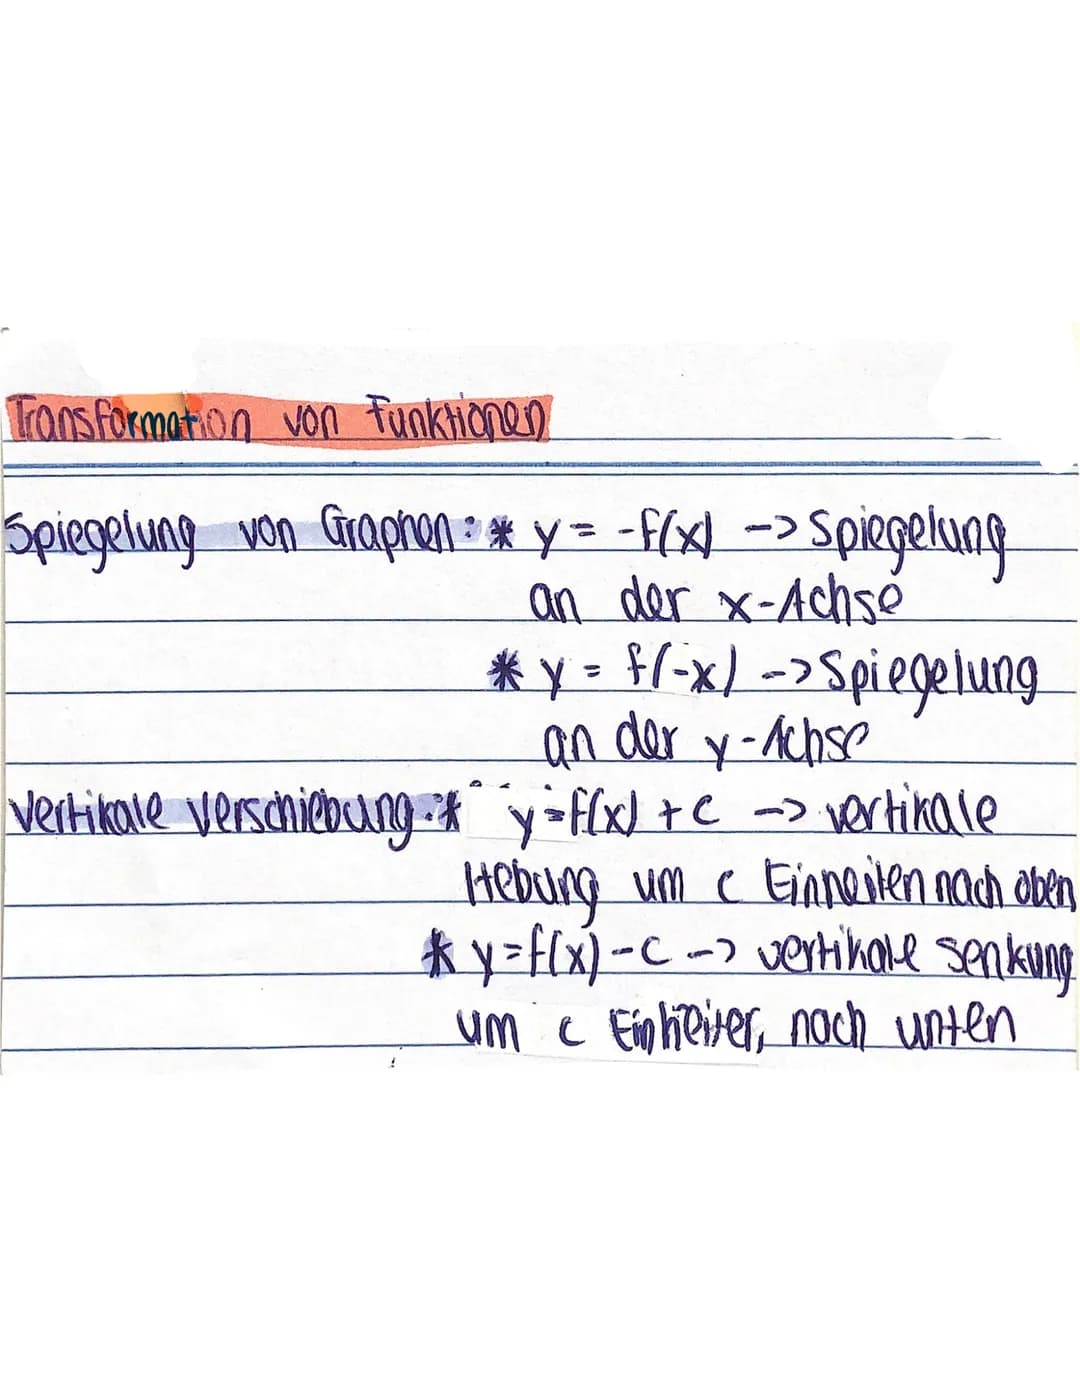 Transformation von Funktionen
Spiegelung von Graphen: * y = -f(x) -> Spiegelung
an der x-Achse
* y = f(-x) -> Spiegelung
an der y-Achse
Vertikale Verschiebung: * y=f(x) + c -> vertikale
Hebung um c Einheiten nach oben
* y=f(x) - c -> vertikale Senkung
um c Einheiten nach unten